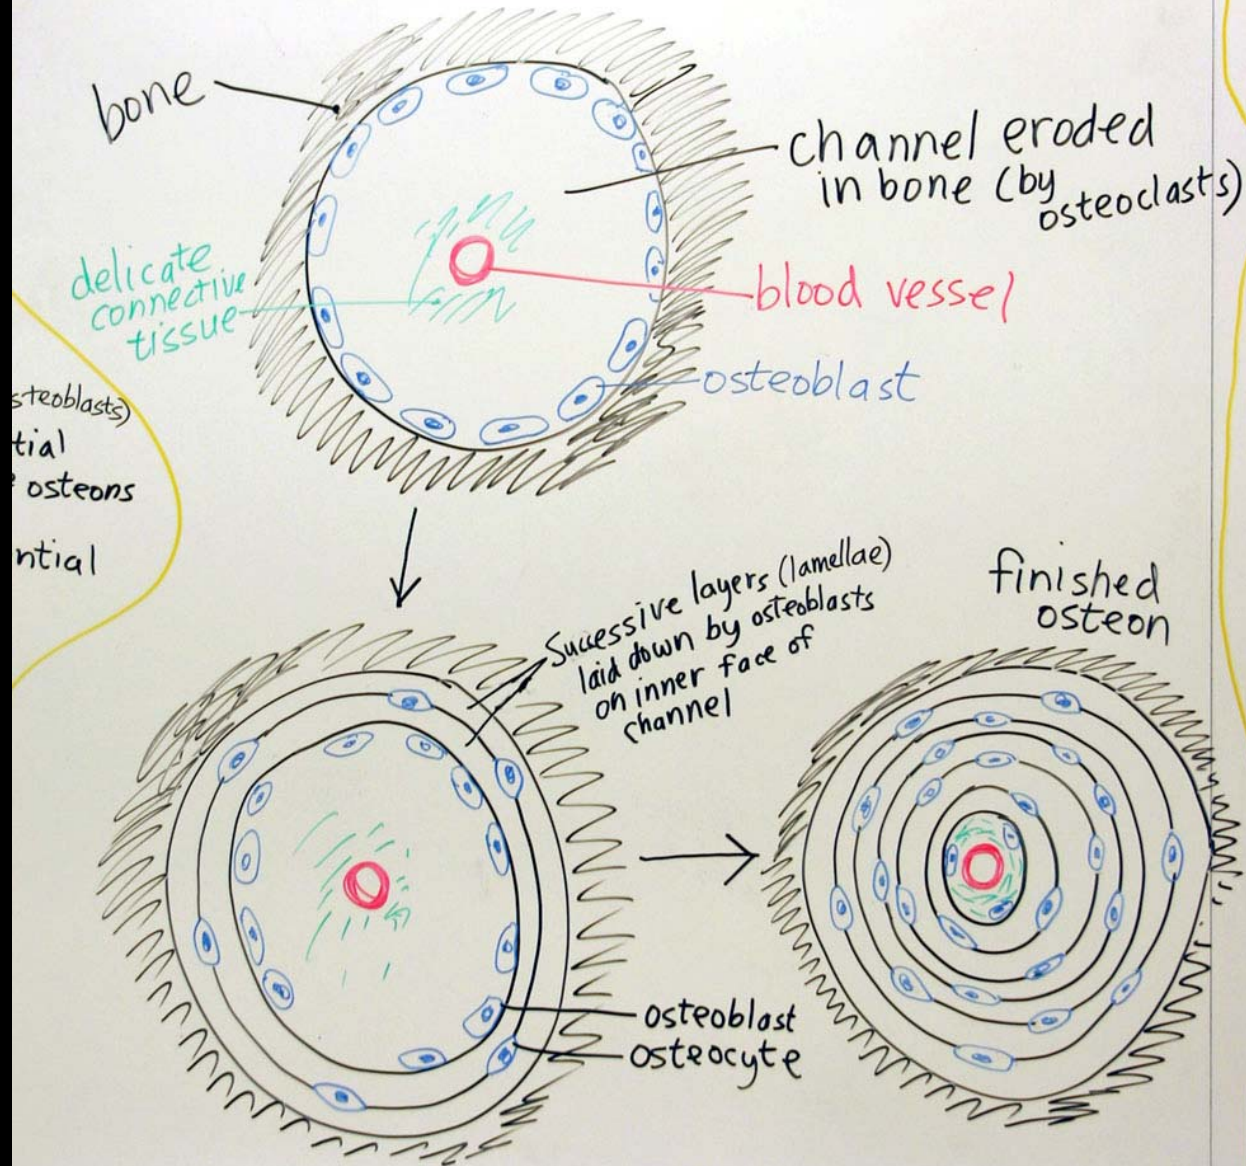 bone
channel eroded
in bone (by
osteoclasts)
delicate
connective
tissue
blood vessel
osteoblast
steoblasts)
tial
osteons
ntial
Successive layers (lamellae)
laid down by osteoblasts
on inner face of
channel
finished
osteon
osteoblast
osteocyte